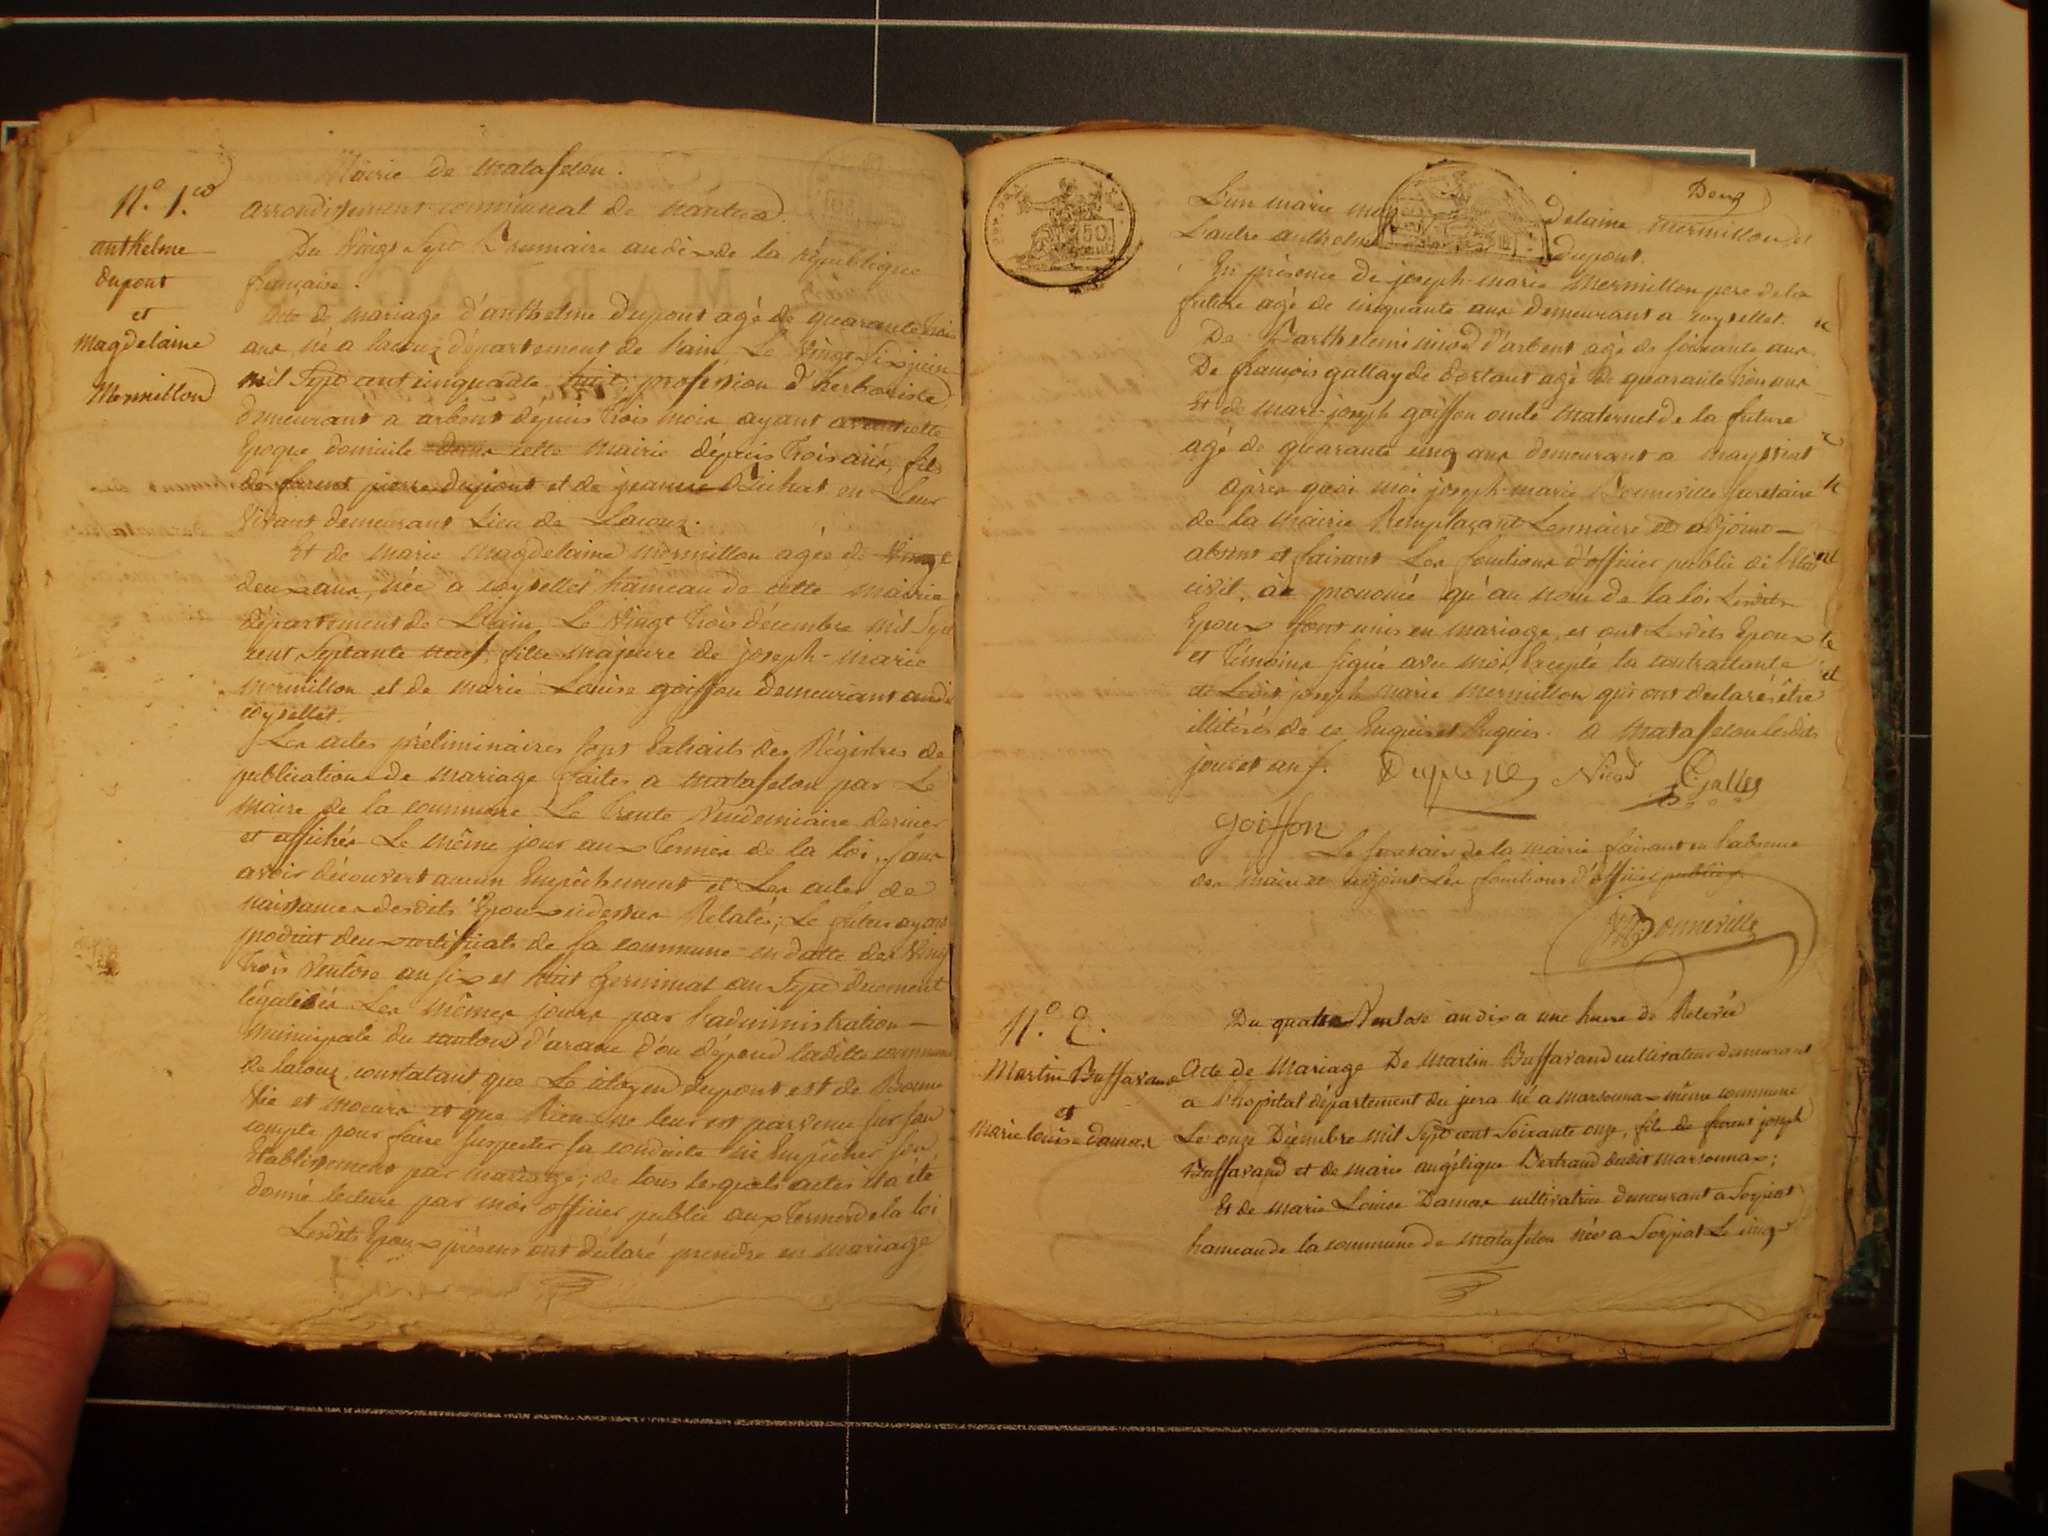 Mairie de matafelon.
N.º 1.er
arrondissement communal de nantua.
anthelme
dupont
et
Magdelaine
Mermillon
Du Vingt Sept Brumaire an dix de la République
française.
Acte de mariage d'anthelme Dupont agé de quarante trois
ans, né a lacoux département de l'ain, Le Vingt Six juin
mil Sept cent cinquante huit, profession d'herboriste,
demeurant a arbent dépuis Trois mois ayant avant cette
Epoque domicile dans cette mairie dépuis Trois ans, fils
de furent pierre dupont et de jeanne Richut en Leur
Vivant demeurant Lieu de Lacoux.
Et de marie magdelaine mermillon agée de Vingt
deux ans, née a coysellet hameau de cette mairie
département de L'ain, Le Vingt Trois décembre mil Sept
cent Septante neuf, fille majeure de joseph-marie
mermillon et de marie Louise goiffon demeurant audit
coysellet.
Les actes préliminaires sont Extraits des Régistres de
publication de mariage faites a matafelon par Le
maire de la commune Le Trente Vendemiaire dernier
et affichés Le même jour aux Termes de la loi, sans
avoir découvert aucun Empêchement et Les actes de
naissances desdits Epoux cidessus Relatés; Le futur ayant
produit deux certificats de sa commune en datte des Vingt
Trois Ventôse an six et huit germinal an Sept duement
légalisés Les mêmes jours par l'administration
municipale du canton d'arane d'ou dépend laditte commune
de lacoux, constatant que Le citoyen dupont est de Bonne
Vie et moeurs et que Rien ne leur est parvenu sur son
compte pour faire suspecter sa conduite ni Empêcher son
Etablissement par mariage; de tous lesquels actes il a été
donné lecture par moi officier public aux Termes de la loi
Lesdits Epoux présens ont déclaré prendre en mariage
Deux
50
L'un marie magdelaine mermillon, et
L'autre anthelme dupont.
En présence de joseph-marie Mermillon pere de la
future agé de cinquante ans demeurant a coysellet.
De Barthelemi nicod d'arbent agé de soixante ans
De françois gallay de dortant agé de quarante trois ans
Et de marc-joseph goiffon oncle maternel de la future
agé de quarante cinq ans demeurant a mayssiat
après quoi moi joseph-marie Bonneville secretaire
de la mairie Remplaçant Les maire et adjoint
absens et faisant Les fonctions d'officier public de l'état
civil, ai prononcé qu'au nom de la loi Lesdits
Epoux sont unis en mariage, et ont Lesdits Epoux
et Témoins signé avec moi, Excepté la contractante
et Ledit joseph marie mermillon qui ont déclaré être
illitérés de ce Enquis et Requis. a matafelon Lesdits
jour et an.
Nicod Galley
goiffon
Le secretaire de la mairie faisant en l'absence
des maire et adjoint Les fonctions d'officier public
Bonneville
N.º 2.
Du quatre Ventose an dix a une heure de Relevée
Martin Buffavand
et
Marie louise damas
Acte de Mariage De Martin Buffavand cultivateur demeurant
a l'hopital département du jura né a marsonnax même commune
Le onze Décembre mil Sept cent Soixante onze, fils de furent joseph
Buffavand et de marie angélique Bertrand dudit marsonnax;
Et de marie Louise Damas cultivatrice demeurant a Sorpiat
hameau de la commune de matafelon née a Sorpiat Le cinq